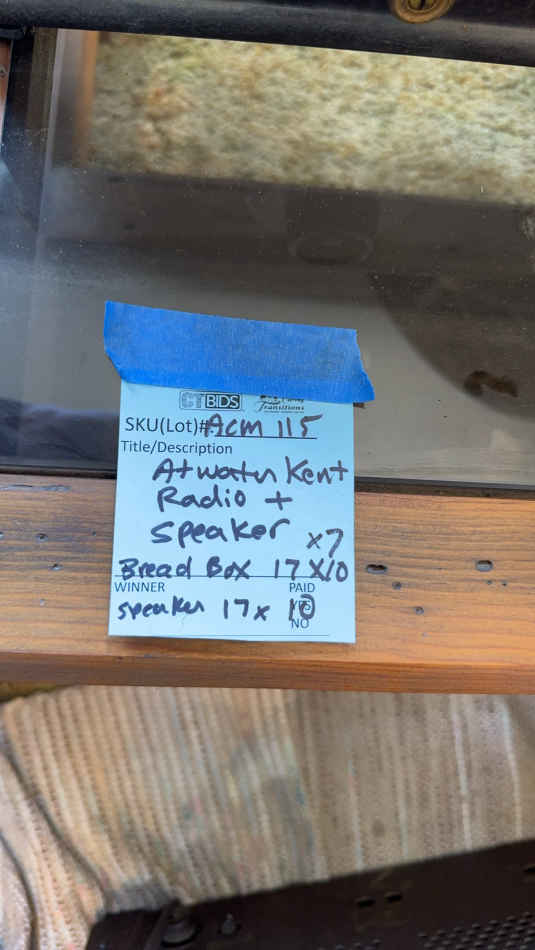 CTBIDS Transitions
SKU(Lot)#: Acm 115
Title/Description
Atwater Kent
Radio +
Speaker x7
Bread Box 17 x10
WINNER PAID
speaker 17 x 10 YES
NO